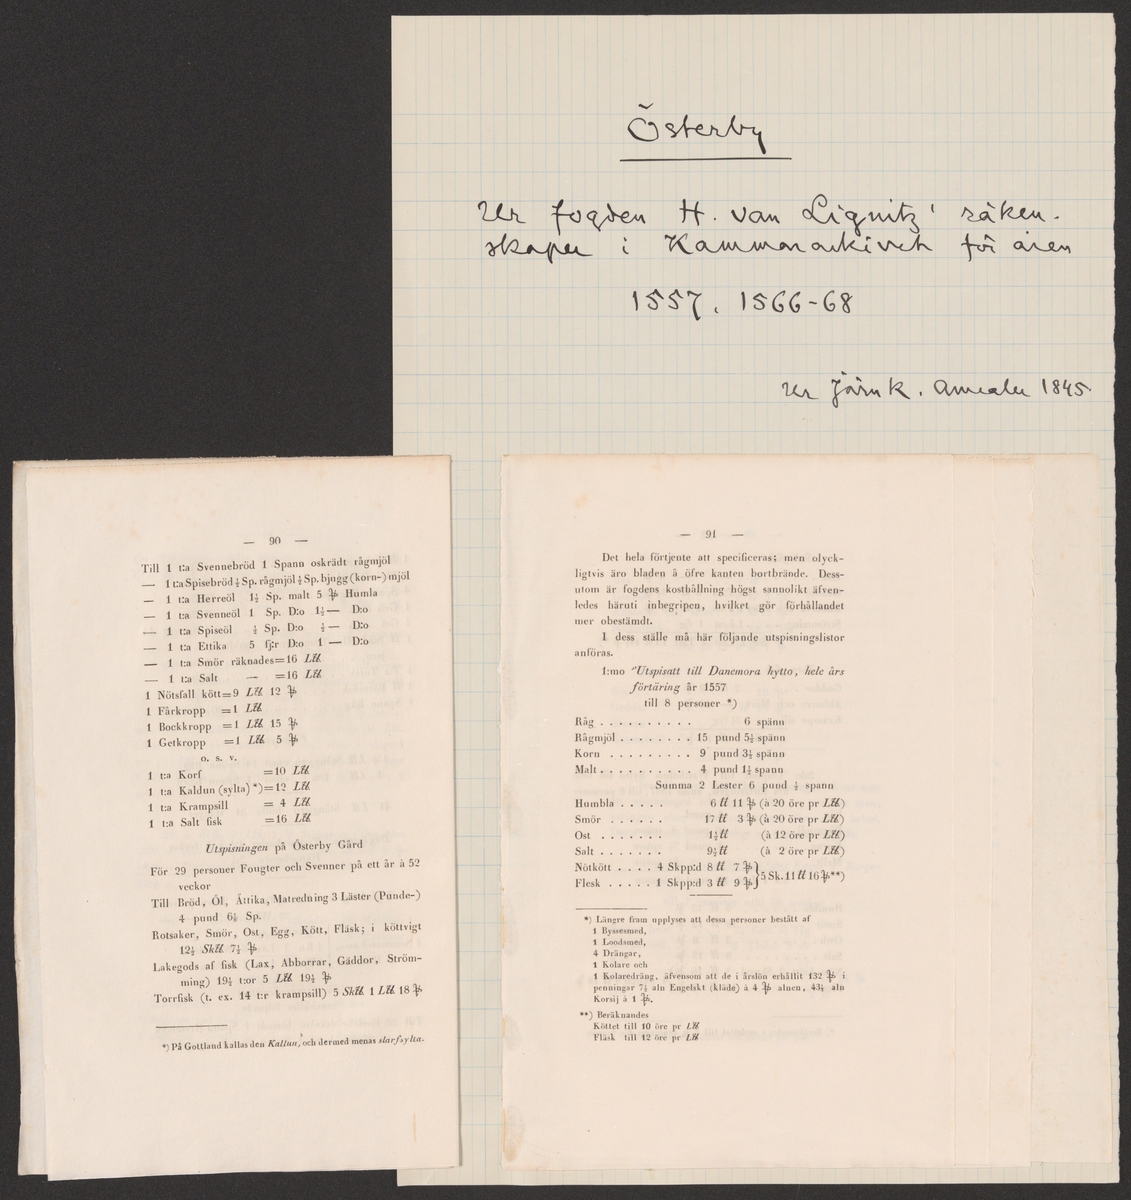 Österby
Ur fogden H. van Lignitz' räken-
skaper i Kammararkivet för åren
1557. 1566-68
Ur Järnk. Annaler 1845.
— 90 —
Till 1 t:a Svennebröd 1 Spann oskrädt rågmjöl
— 1 t:a Spisebröd ½ Sp. rågmjöl ½ Sp. bjugg (korn-) mjöl
— 1 t:a Herreöl 1½ Sp. malt 5 ℔ Humla
— 1 t:a Svenneöl 1 Sp. D:o 1½ — D:o
— 1 t:a Spiseöl ½ Sp. D:o ½ — D:o
— 1 t:a Ettika 5 fj:r D:o 1 — D:o
— 1 t:a Smör räknades=16 L℔.
— 1 t:a Salt — =16 L℔.
1 Nötsfall kött=9 L℔. 12 ℔
1 Fårkropp =1 L℔.
1 Bockkropp =1 L℔. 15 ℔
1 Getkropp =1 L℔. 5 ℔
o. s. v.
1 t:a Korf =10 L℔.
1 t:a Kaldun (sylta) *)=12 L℔.
1 t:a Krampsill = 4 L℔.
1 t:a Salt fisk =16 L℔.
Utspisningen på Österby Gård
För 29 personer Fougter och Svenner på ett år à 52
veckor
Till Bröd, Öl, Ättika, Matredning 3 Läster (Punde-)
4 pund 6½ Sp.
Rotsaker, Smör, Ost, Egg, Kött, Fläsk; i köttvigt
12½ Sk℔. 7½ ℔
Lakegods af fisk (Lax, Abborrar, Gäddor, Ström-
ming) 19½ t:or 5 L℔. 19½ ℔
Torrfisk (t. ex. 14 t:r krampsill) 5 Sk℔. 1 L℔. 18 ℔
*) På Gottland kallas den Kallun, och dermed menas slarfsylta.
— 91 —
Det hela förtjente att specificeras; men olyck-
ligtvis äro bladen å öfre kanten bortbrände. Dess-
utom är fogdens kosthållning högst sannolikt äfven-
ledes häruti inbegripen, hvilket gör förhållandet
mer obestämdt.
I dess ställe må här följande utspisningslistor
anföras.
1:mo "Utspisatt till Danemora hytto, hele års
förtäring år 1557
till 8 personer *)
Råg . . . . . . . . . . 6 spänn
Rågmjöl . . . . . . . . 15 pund 5½ spänn
Korn . . . . . . . . . 9 pund 3½ spänn
Malt . . . . . . . . . . 4 pund 1½ spann
Summa 2 Lester 6 pund ½ spann
Humbla . . . . . 6 ℔ 11 ℔ (à 20 öre pr L℔)
Smör . . . . . . 17 ℔ 3 ℔ (à 20 öre pr L℔)
Ost . . . . . . . 1½ ℔ (à 12 öre pr L℔)
Salt . . . . . . . 9½ ℔ (à 2 öre pr L℔)
Nötkött . . . . 4 Skpp:d 8 ℔ 7 ℔ } 5 Sk. 11 ℔ 16 ℔ **)
Flesk . . . . . 1 Skpp:d 3 ℔ 9 ℔
*) Längre fram upplyses att dessa personer bestått af
1 Byssesmed,
1 Loodsmed,
4 Drängar,
1 Kolare och
1 Kolaredräng, äfvensom att de i årslön erhållit 132 ℔ i
penningar 7½ aln Engelskt (kläde) à 4 ℔ alnen, 43½ aln
Korsij à 1 ℔.
**) Beräknandes
Köttet till 10 öre pr L℔
Fläsk till 12 öre pr L℔